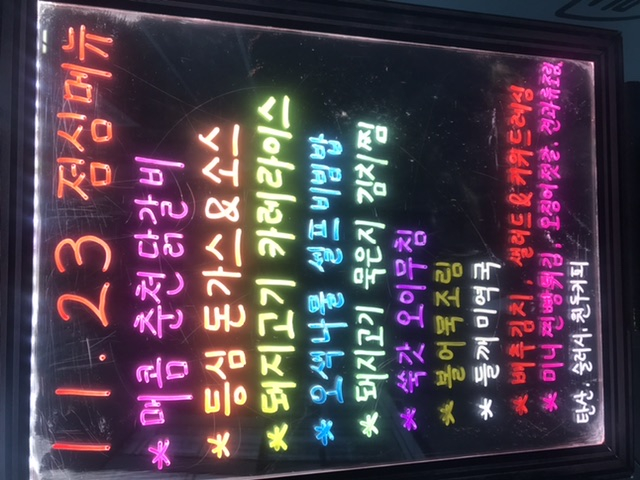 11.23 점심메뉴
* 매콤 춘천닭갈비
* 등심 돈가스&소스
* 돼지고기 카레라이스
* 오색나물 셀프비빔밥
* 돼지고기 묵은지 김치찜
* 쑥갓 오이무침
* 볼어묵조림
* 들깨 미역국
* 배추김치, 샐러드&키위드레싱
* 미니찐빵튀김, 오징어젓갈,
탄산, 슬러시, 원두커피